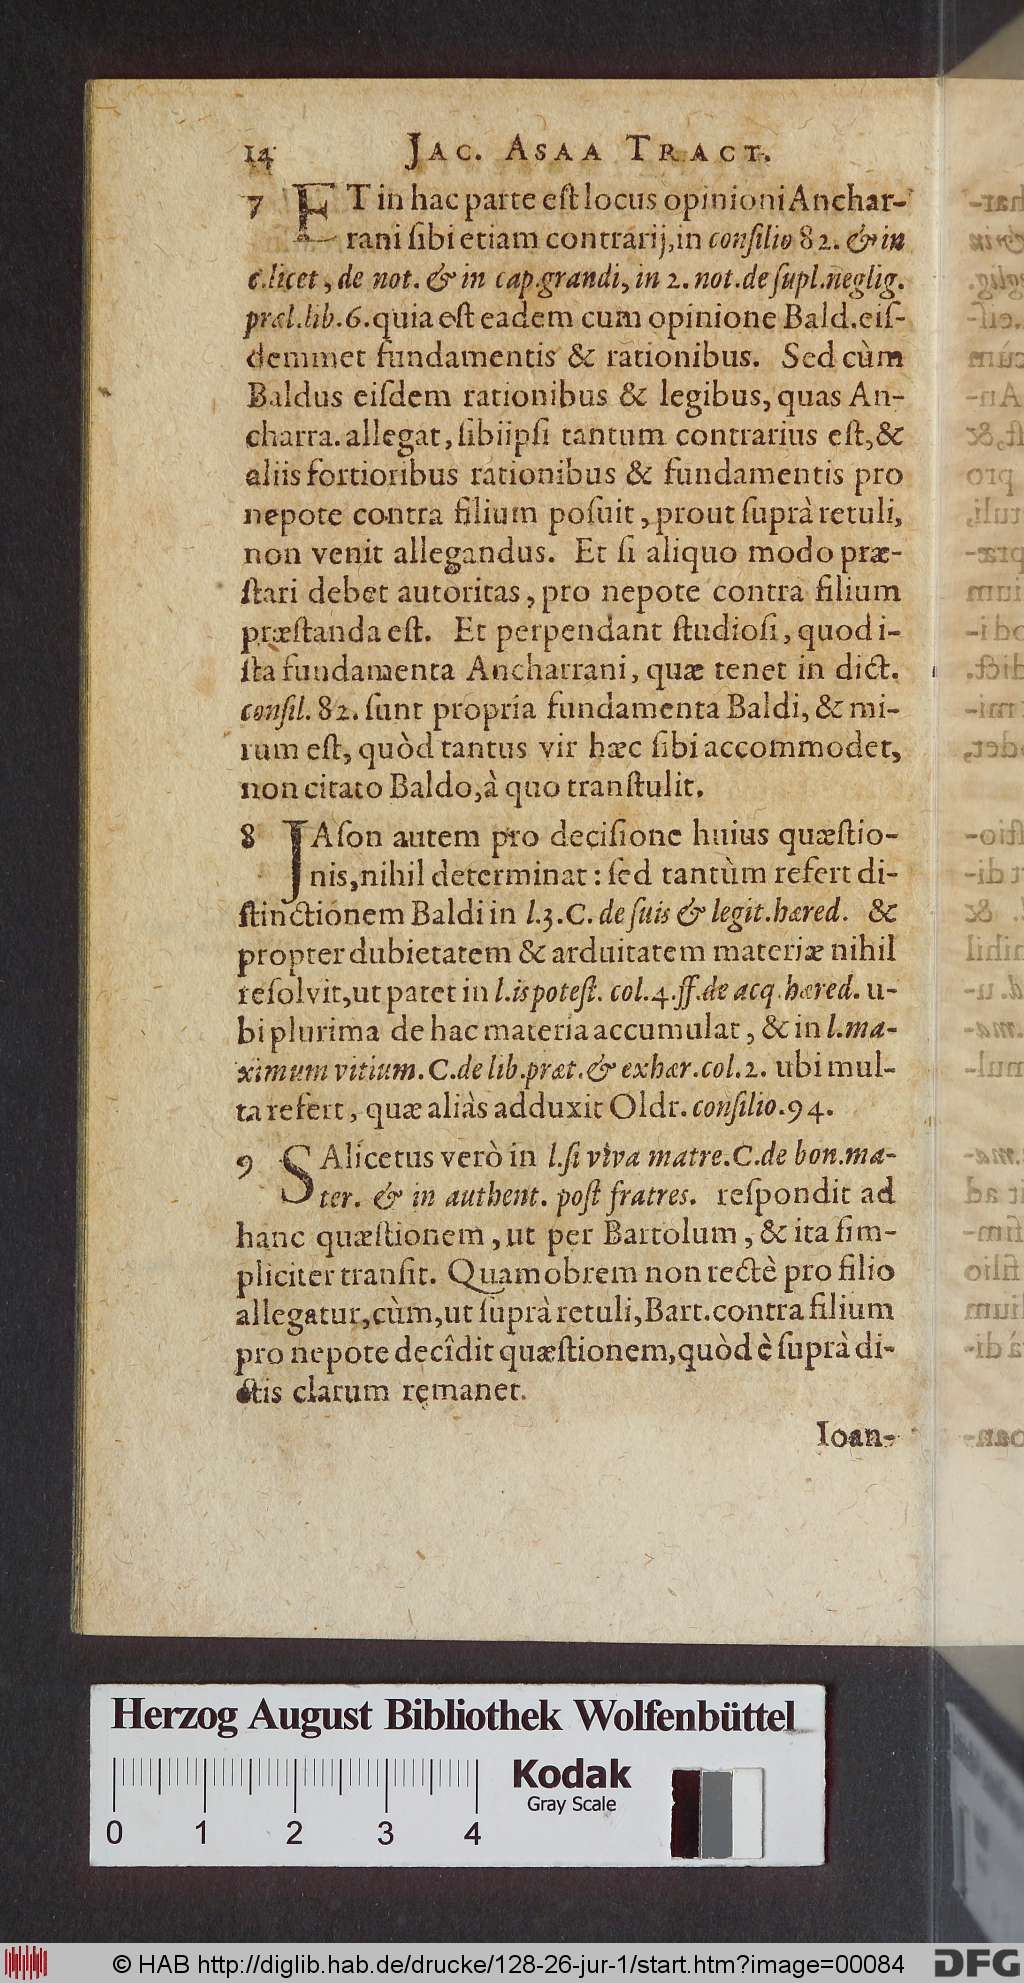 14 JAC. ASAA TRACT.
7 ET in hac parte eſt locus opinioni Anchar-
rani ſibi etiam contrarij, in conſilio 82. & in
c. licet, de not. & in cap. grandi, in 2. not. de ſupl. neglig.
præl. lib. 6. quia eſt eadem cum opinione Bald. eiſ-
demmet fundamentis & rationibus. Sed cùm
Baldus eiſdem rationibus & legibus, quas An-
charra. allegat, ſibiipſi tantum contrarius eſt, &
aliis fortioribus rationibus & fundamentis pro
nepote contra filium poſuit, prout ſuprà retuli,
non venit allegandus. Et ſi aliquo modo præ-
ſtari debet autoritas, pro nepote contra filium
præſtanda eſt. Et perpendant ſtudioſi, quod i-
ſta fundamenta Ancharrani, quæ tenet in dict.
conſil. 82. ſunt propria fundamenta Baldi, & mi-
rum eſt, quòd tantus vir hæc ſibi accommodet,
non citato Baldo, à quo tranſtulit.
8 JAſon autem pro deciſione huius quæſtio-
nis, nihil determinat: ſed tantùm refert di-
ſtinctionem Baldi in l. 3. C. de ſuis & legit. hæred. &
propter dubietatem & arduitatem materiæ nihil
reſolvit, ut patet in l. is poteſt. col. 4. ff. de acq. hæred. u-
bi plurima de hac materia accumulat, & in l. ma-
ximum vitium. C. de lib. præt. & exhær. col. 2. ubi mul-
ta refert, quæ aliàs adduxit Oldr. conſilio. 94.
9 SAlicetus verò in l. ſi viva matre. C. de bon. ma-
ter. & in authent. poſt fratres. reſpondit ad
hanc quæſtionem, ut per Bartolum, & ita ſim-
pliciter tranſit. Quamobrem non rectè pro filio
allegatur, cùm, ut ſuprà retuli, Bart. contra filium
pro nepote decîdit quæſtionem, quòd è ſuprà di-
ctis clarum remanet.
Ioan-
Herzog August Bibliothek Wolfenbüttel
Kodak
Gray Scale
0 1 2 3 4
© HAB http://diglib.hab.de/drucke/128-26-jur-1/start.htm?image=00084
DFG